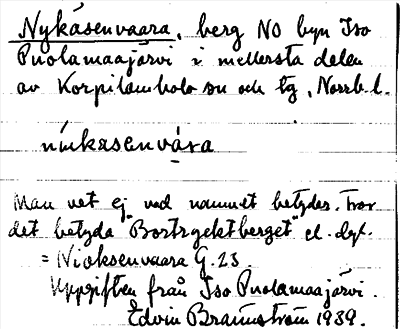 Nykäsenvaara, berg NO byn Iso
Puolamaajärvi i mellersta delen
av Korpilombolo sn och tg, Norrb. l.
niikasenvára
Man vet ej vad namnet betyder. Tror
det betyda "Bortryckt berget" el. dyl.
= Nioksenvaara G. 23.
Uppgiften från Iso Puolamaajärvi.
Edvin Brännström 1939.